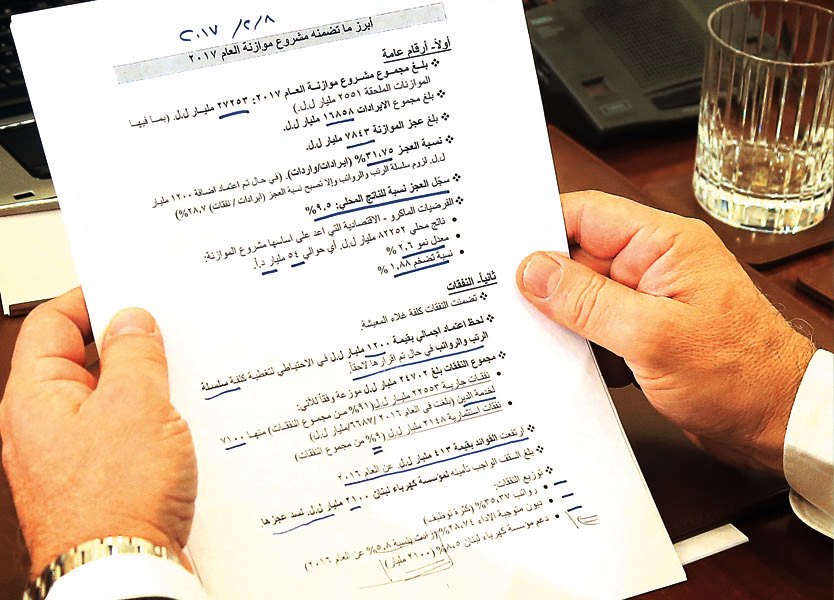 ٢٠١٧ /٢/٨
أبرز ما تضمنه مشروع موازنة العام ٢٠١٧
أولاً- أرقام عامة
❖ بلغ مجموع مشروع موازنة العام ٢٠١٧: ٢٧٢٥٣ مليار ل.ل. (بما فيها
الموازنات الملحقة ٢٥٥١ مليار ل.ل.)
❖ بلغ مجموع الايرادات ١٦٨٥٨ مليار ل.ل.
❖ بلغ عجز الموازنة ٧٨٤٣ مليار ل.ل.
❖ نسبة العجز ٣١,٧٥% (ايرادات/واردات). (في حال تم اعتماد اضافة ١٢٠٠ مليار
ل.ل. لزوم سلسلة الرتب والرواتب وإلا تصبح نسبة العجز (ايرادات / نفقات) ٢٨,٧%)
❖ سجّل العجز نسبة للناتج المحلي: ٩,٥%
❖ الفرضيات الماكرو - الاقتصادية التي اعد على اساسها مشروع الموازنة:
• ناتج محلي ٨٢٢٥٢ مليار ل.ل. أي حوالي ٥٤ مليار د.أ.
• معدل نمو ٢,٦ %
• نسبة تضخم ١,٨٨ %
ثانياً- النفقات
❖ تضمنت النفقات كلفة غلاء المعيشة.
❖ لحظ اعتماد اجمالي بقيمة ١٢٠٠ مليار ل.ل في الاحتياطي لتغطية كلفة سلسلة
الرتب والرواتب في حال تم اقرارها لاحقاً.
❖ مجموع النفقات بلغ ٢٤٧٠٢ مليار ل.ل موزعة وفقاً للآتي:
• نفقات جارية ٢٢٥٥٣ مليار ل.ل (٩١% من مجموع النفقات) منها ٧١٠٠
لخدمة الدين (بلغت في العام ٢٠١٦ /٦٦٨٧/ مليار ل.ل)
• نفقات استثمارية ٢١٤٨ مليار ل.ل (٩% من مجموع النفقات)
❖ ارتفعت الفوائد بقيمة ٤١٣ مليار ل.ل. عن العام ٢٠١٦
❖ بلغ السقف الواجب تأمينه لمؤسسة كهرباء لبنان ٢١٠٠ مليار ل.ل. لسد عجزها
❖ توزيع النفقات:
• رواتب ٣٥,٣٧% (كثرة توظيف)
• ديون متوجبة الاداء ٢٨,٧٤% (زادت بنسبة ٥,٨% عن العام ٢٠١٦)
• دعم مؤسسة كهرباء لبنان ٨,٥% (٢١٠٠ مليار)
١